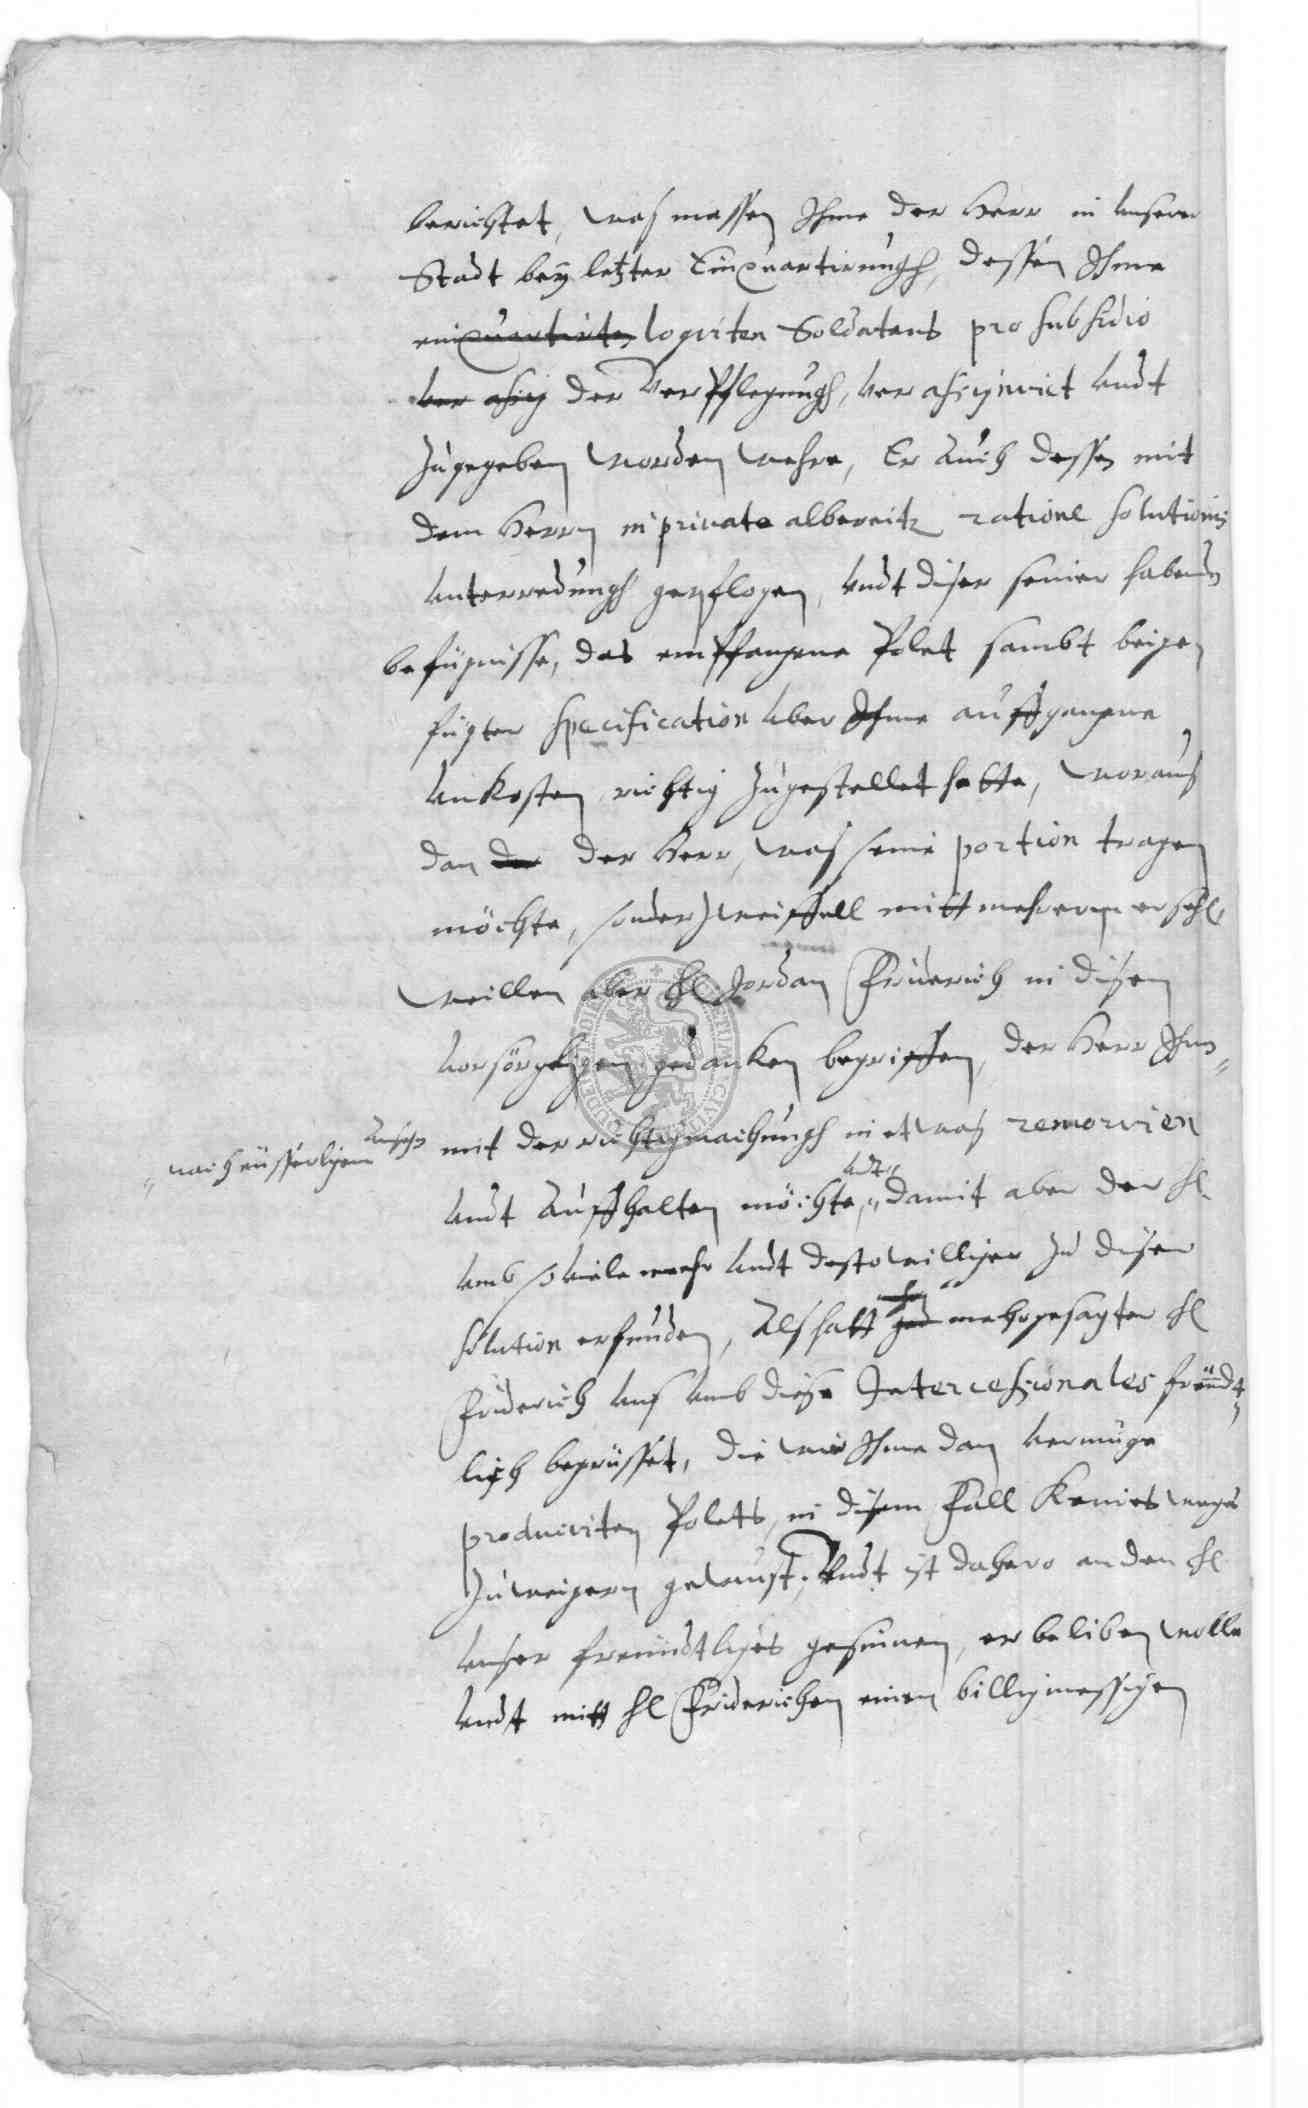 berichtet, was massen Ihme der Herr in Unserer
Stadt bey letzter Einquartirungh, dessen Ihme
einquartirten logirten Soldatens pro subsidio
ver assig der Verpflegungh, ver assigniret undt
zugegeben worden wehre, Er auch dessen mit
dem Herrn in privato albereitz ratione solutionis
unterredungh gepflogen, undt diser seiner habenden
befugnisse, das empfangene Polet sambt beige
fügter specification uber Ihme auffgangene
Unkosten richtig zugestellet hette, woraus
dan der der Herr, was seine portion tragen
möchte, sonder zweiffell mitt mehrerm ersehen
weillen aber Hl Jordan Friderich in disem
vorsörgligen gedanken begriffen, der Herr Ihm
mit der richtigmachungh in etwas remoriren
nach eüsserligem Ansehn
undt auffhalten möchte, undt damit aber der Hl
umb so viele mehr undt desto williger zu diser
solution erfunden, Als hatt mehrgesagter Hl
Friderich uns umb dise Intercessionales freündt
lich begrüsset, die wir Ihme dan vermüge
produciten Polets, in disem Fall Keines weges
zu weigern gewust, Undt ist dahero an den Hl
unser freündtliches gesinnen, er beliben wolle
undt mitt Hl Friderichen einen billigmessigen